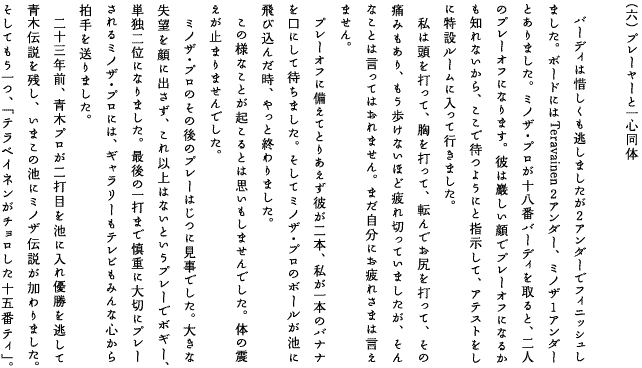 （六）プレーヤーと一心同体
　バーディは惜しくも逃しましたが２アンダーでフィニッシュし
ました。ボードにはTeravainen２アンダー、ミノザ１アンダー
とありました。ミノザ・プロが十八番バーディを取ると、二人
のプレーオフになります。彼は厳しい顔でプレーオフになるか
も知れないから、ここで待つようにと指示して、アテストをし
に特設ルームに入って行きました。
　私は頭を打って、胸を打って、転んでお尻を打って、その
痛みもあり、もう歩けないほど疲れ切っていましたが、そん
なことは言ってはおれません。まだ自分にお疲れさまは言え
ません。
　プレーオフに備えてとりあえず彼が二本、私が一本のバナナ
を口にして待ちました。そしてミノザ・プロのボールが池に
飛び込んだ時、やっと終わりました。
　この様なことが起こるとは思いもしませんでした。体の震
えが止まりませんでした。
　ミノザ・プロのその後のプレーはじつに見事でした。大きな
失望を顔に出さず、これ以上はないというプレーでボギー、
単独二位になりました。最後の一打まで慎重に大切にプレー
されるミノザ・プロには、ギャラリーもテレビもみんな心から
拍手を送りました。
　二十三年前、青木プロが二打目を池に入れ優勝を逃して
青木伝説を残し、いまこの池にミノザ伝説が加わりました。
そしてもう一つ、「テラベイネンがチョロした十五番ティ」。